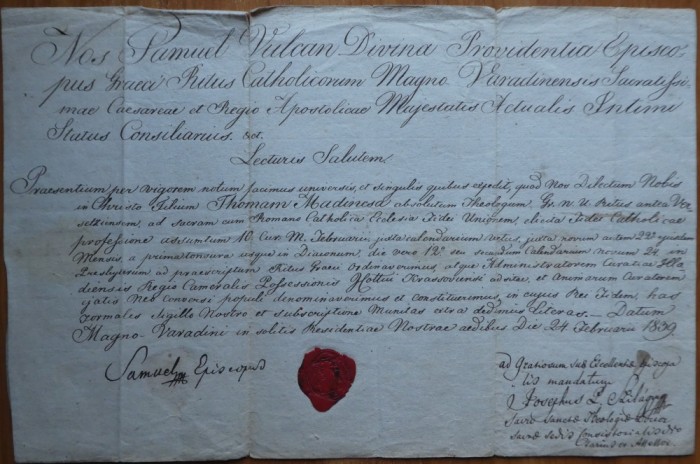 Nos Samuel Vulcan Divina Providentia Episco-
pus Graeci Ritus Catholicorum Magno Varadinensis Sacratissi-
mae Caesareae et Regio Apostolicae Majestatis Actualis Intimi
Status Consiliarius. &ct.
Lecturis Salutem.
Praesentium per vigorem notum facimus universis, et singulis quibus expedit, quod Nos Dilectum Nobis
in Christo Filium Thomam Madinesa absolutum Theologum Gr. N. U. Ritus antea
ad sacram cum Romano Catholica Ecclesia Fidei Unionem elicita Fidei Catholicae
professione adsumtum 10. Cur. M. Februarii juxta calendarium vetus, juxta novum autem 22a ejusdem
Mensis, a prima tonsura usque in Diaconum, die vero 12a seu secundum Calendarium novum 24. in
Presbyterum ad praescriptum Ritus Graeci ordinaverimus, atque Administratorem Curatiae
diensis Regio Cameralis Possessionis Comitatui Krassoviensi adsitae, et Animarum Curatorem
ejatis Neo Conversi populi denominaverimus et constituerimus, in cujus Rei Fidem, has
formales Sigillo Nostro et subscriptione Munitas extra dedimus Literas. – Datum
Magno-Varadini in solitis Residentiae Nostrae aedibus Die 24 Februarii 1839
Samuel Episcopus
ad Gratiosum Suae Excellentiae Episcopa
lis mandatum
Josephus P. Szilágyi
Sacrae Sanctae Theologiae Doctor
Sacrae Sedis Consistorialis